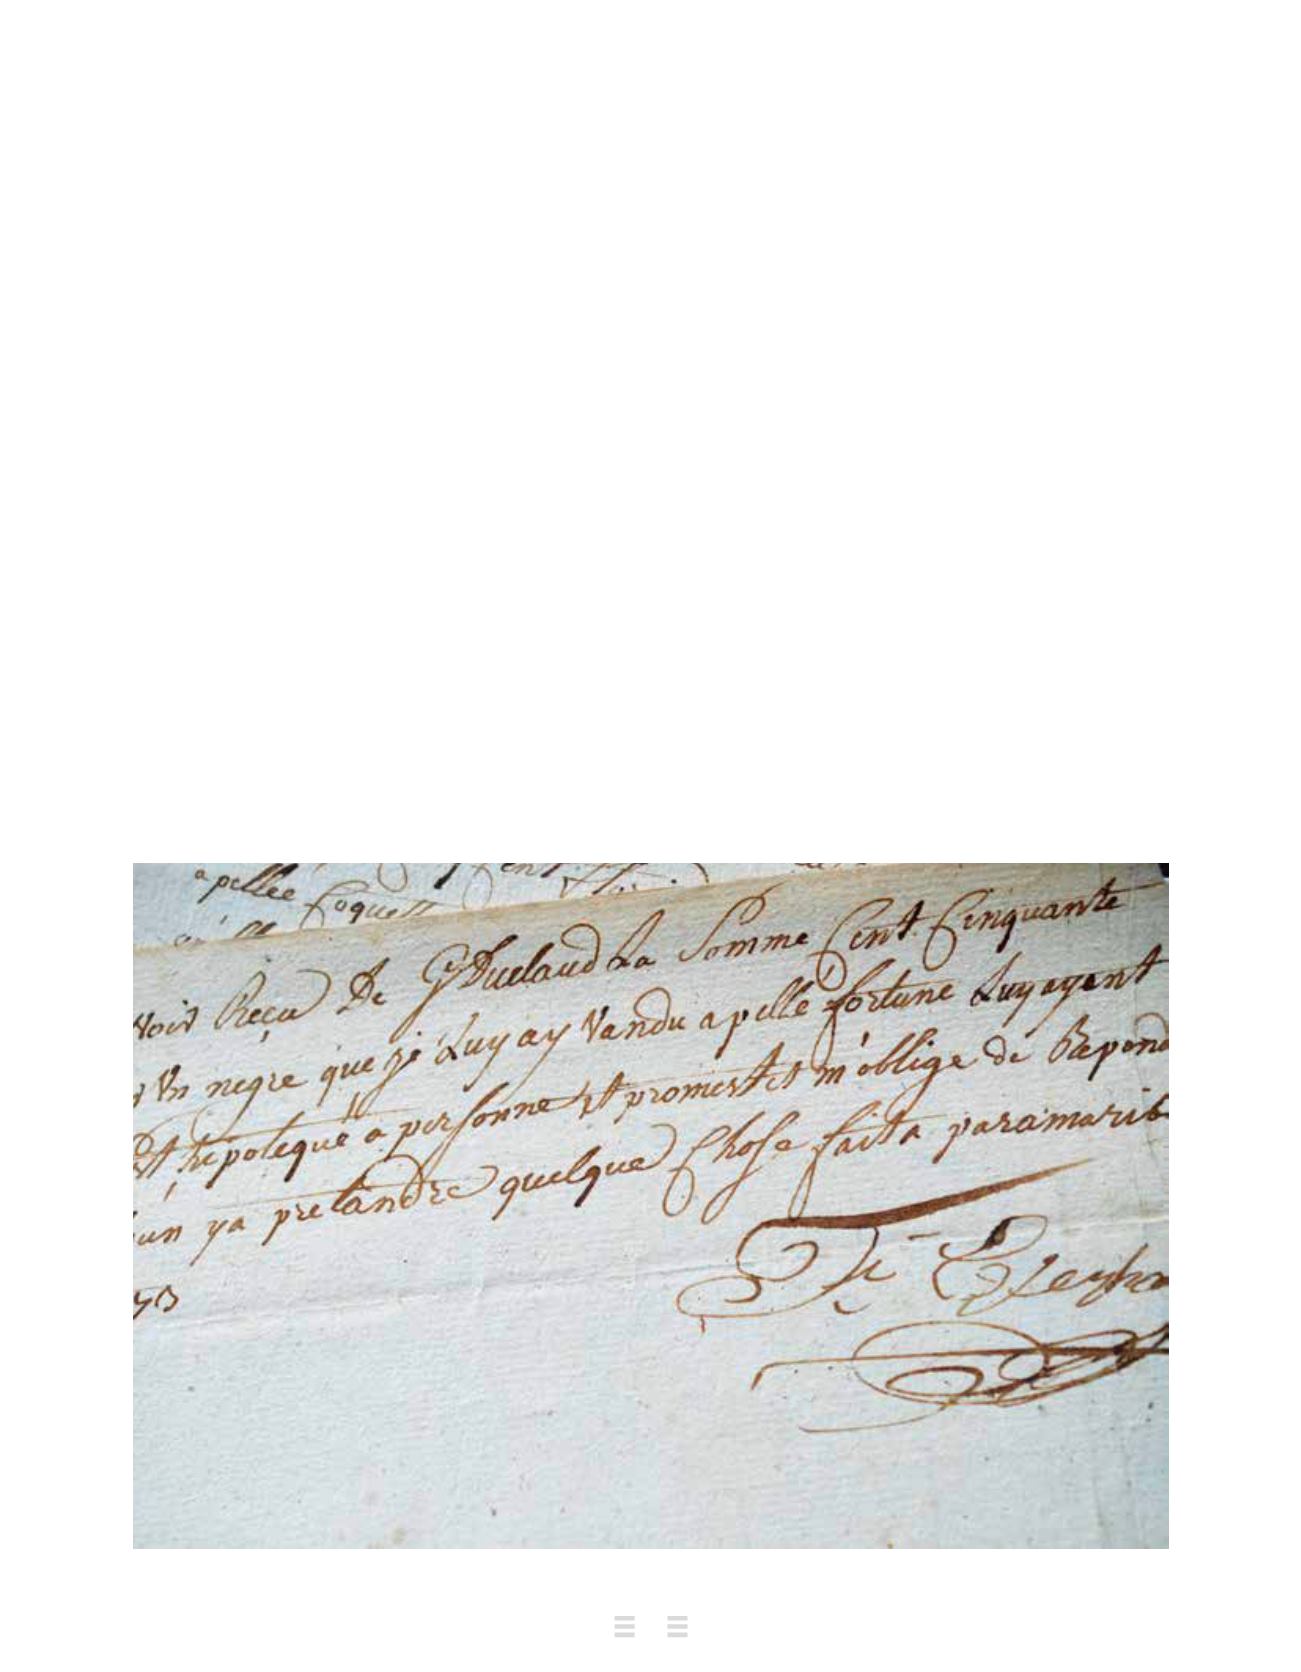 apellée Coquett
voir Reçu De G Duclaud La Somme Cent Cinquante
Un negre que je Luy ay Vandu apellé fortune Luy ayent
Et hipotequé a personne Et promest et m'oblige de Repond
un ya pretandre quelque Chose fait a paramarib